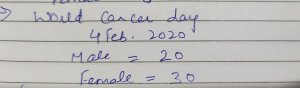 → World Cancer day
4 Feb. 2020
Male = 20
Female = 30